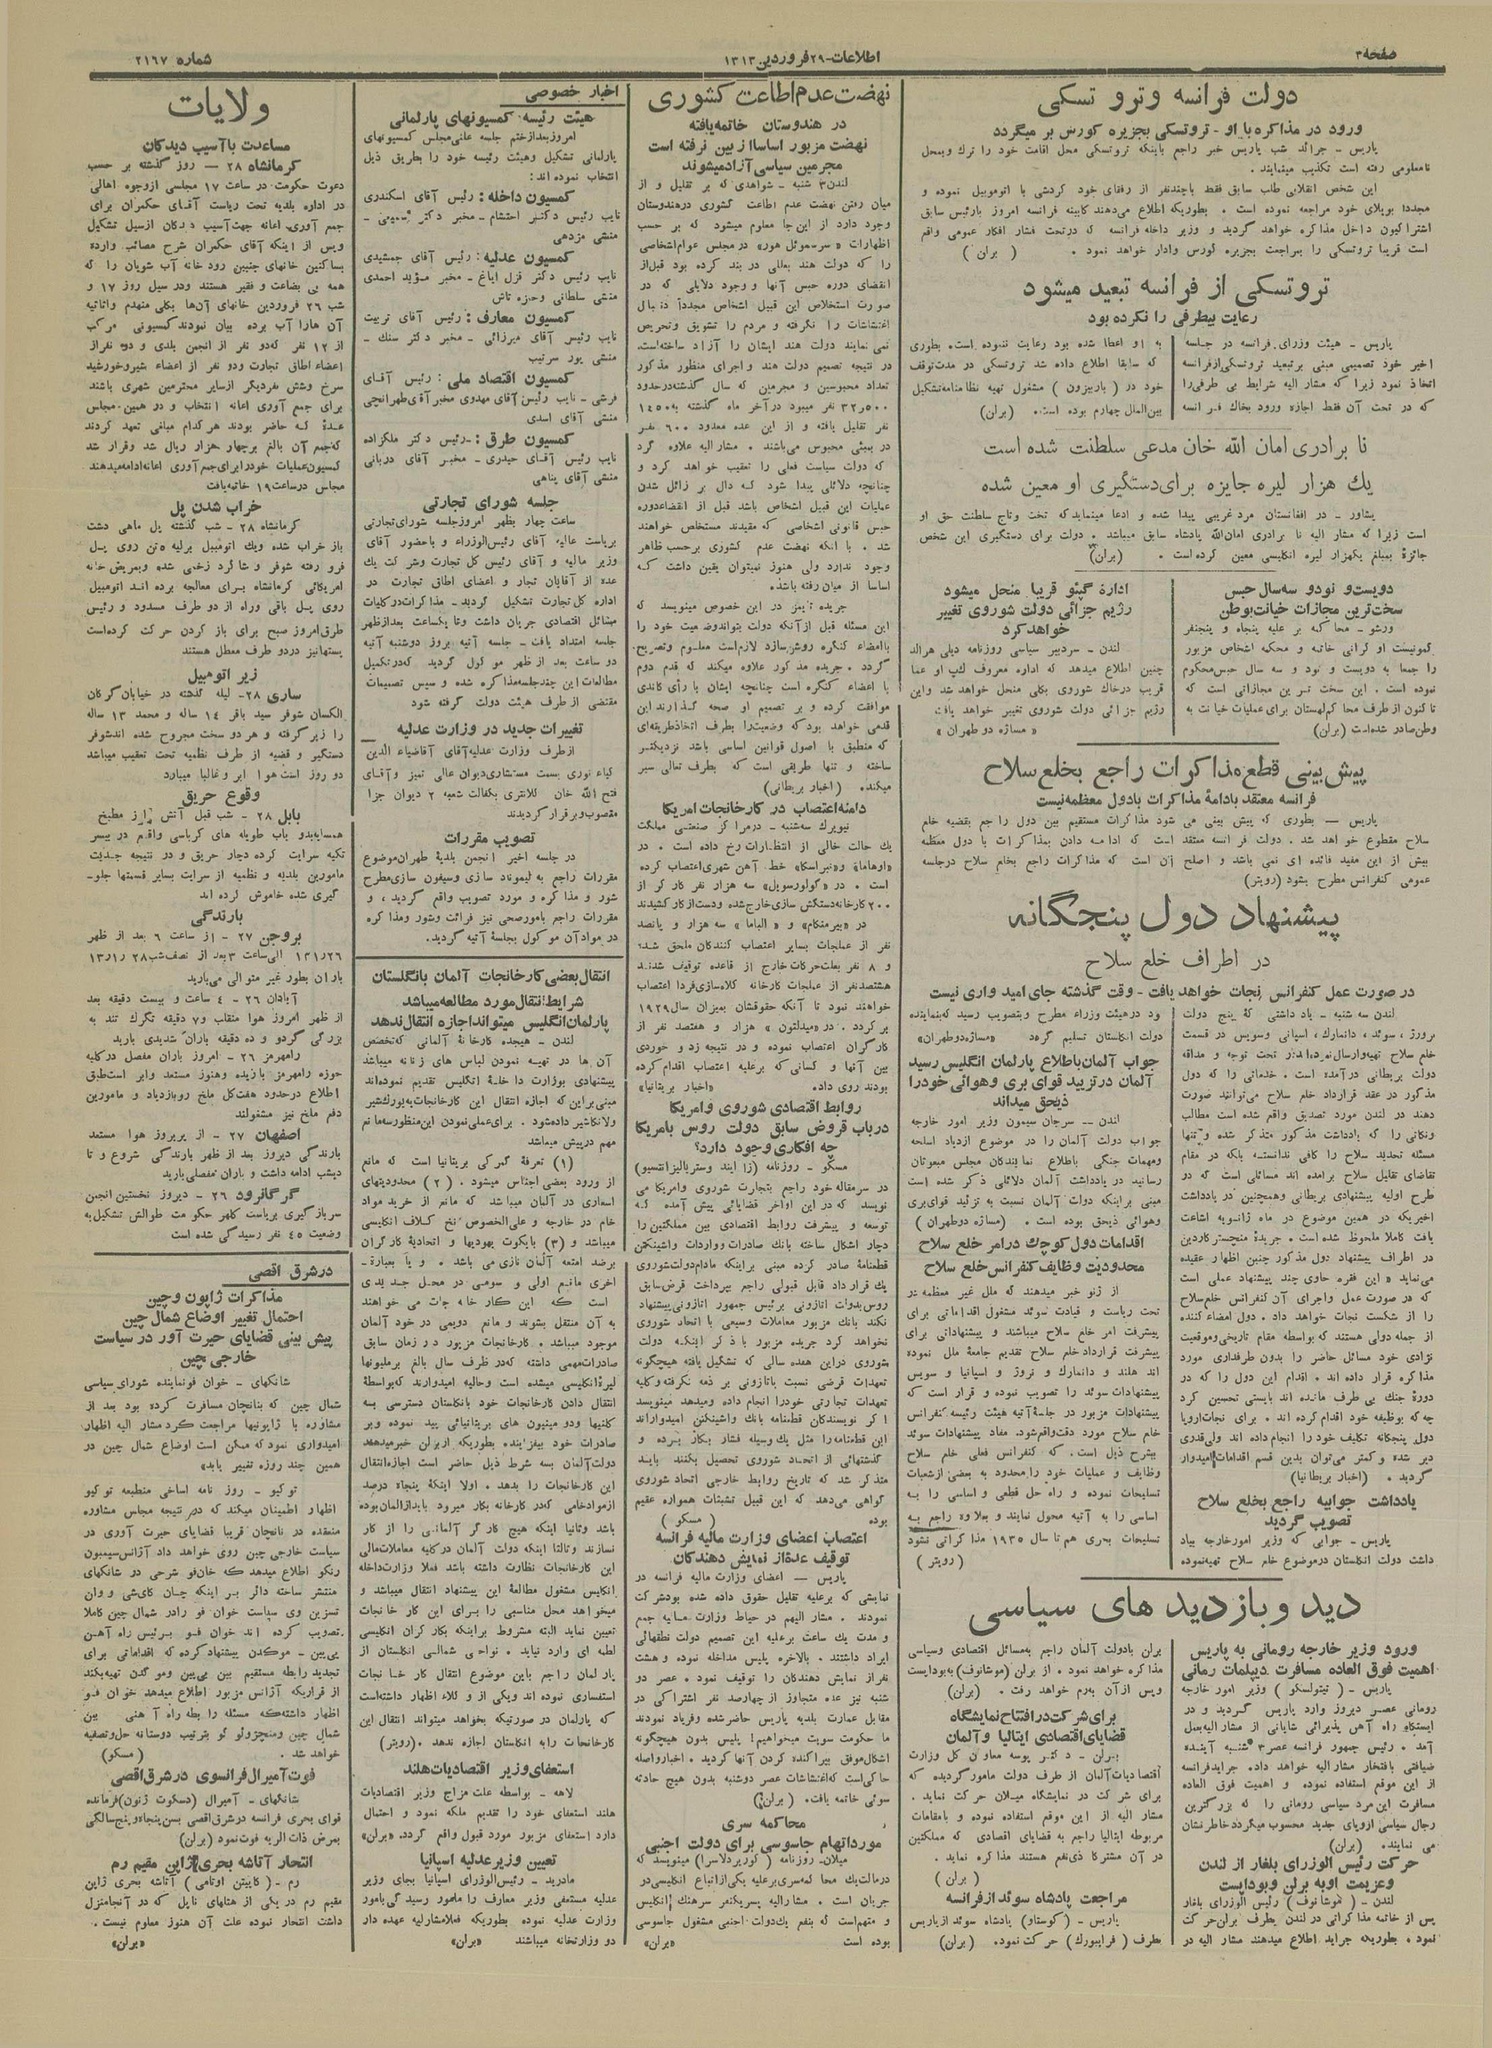 صفحه ۳
اطلاعات - ۲۹ فروردین ۱۳۱۳
شماره ۲۱۶۷
دولت فرانسه و ترو تسکی
ورود در مذاکره با او - تروتسکی بجزیره کورس بر میگردد
پاریس - جرائد شب پاریس خبر راجع باینکه تروتسکی محل اقامت خود را ترك و بمحل
نامعلومی رفته است تکذیب مینمایند .
این شخص انقلابی طلب سابق فقط باچندنفر از رفقای خود گردشی با اتوموبیل نموده و
مجددا بویلای خود مراجعه نموده است . بطوریکه اطلاع میدهند کابینه فرانسه امروز بارئیس سابق
اشتراکیون داخل مذاکره خواهد گردید و وزیر داخله فرانسه که درتحت فشار افکار عمومی واقع
است قریبا تروتسکی را بمراجعت بجزیره کورس وادار خواهد نمود . ( برلن )
تروتسکی از فرانسه تبعید میشود
رعایت بیطرفی را نکرده بود
پاریس - هیئت وزرای فرانسه در جلسه
اخیر خود تصمیمی مبنی بر تبعید تروتسکی از فرانسه
اتخاذ نمود زیرا که مشار الیه شرایط بی طرفی را
که در تحت آن فقط اجازه ورود بخاك فرانسه
به او اعطا شده بود رعایت ننموده است. بطوری
که سابقا اطلاع داده شد تروتسکی در مدت توقف
خود در ( باربیزون ) مشغول تهیه نظامنامه تشکیل
بین الملل چهارم بوده است. (برلن)
نا برادری امان الله خان مدعی سلطنت شده است
یك هزار لیره جایزه برای دستگیری او معین شده
پشاور - در افغانستان مرد غریبی پیدا شده و ادعا مینماید که تخت و تاج سلطنت حق او
است زیرا که مشار الیه نا برادری امان الله پادشاه سابق میباشد . دولت برای دستگیری این شخص
جائزۀ بمبلغ یکهزار لیره انگلیسی معین کرده است . (برلن)
دویست و نود و سه سال حبس
سخت ترین مجازات خیانت بوطن
ورشو - محاکمه بر علیه پنجاه و پنجنفر
کمونیست او کرانی خاتمه و محکمه اشخاص مزبور
را جمعا به دویست و نود و سه سال حبس محکوم
نموده است . این سخت ترین مجازاتی است که
تاکنون از طرف محاکم لهستان برای عملیات خیانت به
وطن صادر شده است (برلن)
ادارۀ گپئو قریبا منحل میشود
رژیم جزائی دولت شوروی تغییر
خواهد کرد
لندن - سردبیر سیاسی روزنامه دیلی هرالد
چنین اطلاع میدهد که اداره معروف گپ او عما
قریب درخاك شوروی بکلی منحل خواهد شد و این
رژیم جزائی دولت شوروی تغییر خواهد یافت
« مسازه دو طهران »
پیش بینی قطع مذاکرات راجع بخلع سلاح
فرانسه معتقد بادامۀ مذاکرات بادول معظمه نیست
پاریس - بطوری که پیش بینی می شود مذاکرات مستقیم بین دول راجع بقضیه خلع
سلاح مقطوع خواهد شد . دولت فرانسه معتقد است که ادامه دادن بمذاکرات با دول معظمه
بیش از این مفید فائده ای نمی باشد و اصلح آن است که مذاکرات راجع بخلع سلاح درجلسه
عمومی کنفرانس مطرح بشود (رویتر)
پیشنهاد دول پنجگانه
در اطراف خلع سلاح
در صورت عمل کنفرانس نجات خواهد یافت - وقت گذشته جای امید واری نیست
لندن سه شنبه - یاد داشتی که پنج دولت
نروژ ، سوئد ، دانمارك ، اسپانی وسویس در قسمت
خلع سلاح تهیه وارسال نموده اند تحت توجه و مداقه
دولت بریطانی درآمده است . خدماتی را که دول
مذکور در عقد قرارداد خلع سلاح میتوانند صورت
دهند در لندن مورد تصدیق واقع شده است مطالب
ونکاتی را که یادداشت مذکور متذکر شده و تنها
مسئله تحدید سلاح را کافی ندانسته بلکه در مقام
تقاضای تقلیل سلاح برامده اند مسائلی است که در
طرح اولیه پیشنهادی بریطانی وهمچنین در یادداشت
اخیریکه در همین موضوع در ماه ژانویه اشاعت
یافت کاملا ملحوظ شده است . جریدۀ منچستر گاردین
در اطراف پیشنهاد دول مذکور چنین اظهار عقیده
می نماید « این فقره حاوی چند پیشنهاد عملی است
که در صورت عمل واجرای آن کنفرانس خلع سلاح
را از شکست نجات خواهد داد . دول امضاء کننده
از جمله دولی هستند که بواسطه مقام تاریخی وموقعیت
نژادی خود مسائل حاضر را بدون طرفداری مورد
مذاکره قرار داده اند . اقدام این دول را که در
دورۀ جنك بی طرف مانده اند بایستی تحسین کرد
چه که بوظیفه خود اقدام کرده اند . برای نجات اروپا
دول پنجگانه تکلیف خود را انجام داده اند ولی قدری
دیر شده و کمتر می توان بدین قسم اقدامات امیدوار
گردید . (اخبار بریطانیا)
یادداشت جوابیه راجع بخلع سلاح
تصویب گردید
پاریس - جوابی که وزیر امور خارجه بیاد
داشت دولت انگلستان درموضوع خلع سلاح تهیه نموده
ود در هیئت وزراء مطرح و بتصویب رسید که بنماینده
دولت انگلستان تسلیم گردد «مسازه دو طهران»
جواب آلمان باطلاع پارلمان انگلیس رسید
آلمان در تزیید قوای بری وهوائی خود را
ذیحق میداند
لندن - سرجان سیمون وزیر امور خارجه
جواب دولت آلمان را در موضوع ازدیاد اسلحه
ومهمات جنگی باطلاع نمایندگان مجلس مبعوثان
رسانید در یادداشت آلمان دلائلی ذکر شده است
مبنی براینکه دولت آلمان نسبت به تزئید قوای بری
وهوائی ذیحق بوده است . (مسازه دو طهران)
اقدامات دول کوچك در امر خلع سلاح
محدودیت وظایف کنفرانس خلع سلاح
از ژنو خبر میدهند که ملل غیر معظمه در
تحت ریاست و قیادت سوئد مشغول اقداماتی برای
پیشرفت امر خلع سلاح میباشند و پیشنهاداتی برای
پیشرفت قرارداد خلع سلاح تقدیم جامعۀ ملل نموده
اند هلند و دانمارك و نروژ و اسپانیا و سویس
پیشنهادات سوئد را تصویب نموده و قرار است که
پیشنهادات مزبور در جلسه آتیه هیئت رئیسه کنفرانس
خلع سلاح مورد دقت واقع شود. مفاد پیشنهادات سوئد
بشرح ذیل است. که کنفرانس فعلی خلع سلاح
وظایف و عملیات خود را محدود به بعضی از شعبات
تسلیحات نموده و راه حل قطعی و اساسی را به
اساسی را به آتیه محول نمایند و بعلاوه راجع به
تسلیحات بحری هم تا سال ۱۹۳۵ مذاکراتی نشود
(رویتر)
دید و بازدید های سیاسی
ورود وزیر خارجه رومانی به پاریس
اهمیت فوق العاده مسافرت دیپلمات رمانی
پاریس - ( تیتولسکو ) وزیر امور خارجه
رومانی عصر دیروز وارد پاریس گردید و در
ایستگاه راه آهن پذیرائی شایانی از مشار الیه بعمل
آمد . رئیس جمهور فرانسه عصر ۳ شنبه آینده
ضیافتی بافتخار مشار الیه خواهد داد. جراید فرانسه
از این موقع استفاده نموده و اهمیت فوق العاده
مسافرت این مرد سیاسی رومانی را که بزرگترین
رجال سیاسی اروپای جدید محسوب میگردد خاطر نشان
می نمایند. (برلن)
حرکت رئیس الوزرای بلغار از لندن
وعزیمت اوبه برلن وبوداپست
لندن - (موشانوف) رئیس الوزرای بلغار
پس از خاتمه مذاکراتی در لندن بطرف برلن حرکت
نمود . بطوریکه جراید اطلاع میدهند مشار الیه در
برلن بادولت آلمان راجع بمسائل اقتصادی وسیاسی
مذاکره خواهد نمود . از برلن (موشانوف) به بوداپست
وپس از آن به رم خواهد رفت . (برلن)
برای شرکت در افتتاح نمایشگاه
قضایای اقتصادی ایتالیا و آلمان
برلن - دکتر پوسه معاون کل وزارت
اقتصادیات آلمان از طرف دولت مامور گردیده که
برای شرکت در نمایشگاه میلان حرکت نماید .
مشار الیه از این موقع استفاده نموده و بامقامات
مربوطه ایتالیا راجع به قضایای اقتصادی که مملکتین
در آن مشترکا ذی نفع هستند مذاکره نماید .
( برلن )
مراجعت پادشاه سوئد از فرانسه
پاریس - (گوستاو) پادشاه سوئد از پاریس
بطرف ( فرایبورك ) حرکت نمود. (برلن)
نهضت عدم اطاعت کشوری
در هندوستان خاتمه یافته
نهضت مزبور اساسا از بین نرفته است
مجرمین سیاسی آزاد میشوند
لندن ۳ شنبه - شواهدی که بر تقلیل و از
میان رفتن نهضت عدم اطاعت کشوری درهندوستان
وجود دارد از این جا معلوم میشود که بر حسب
اظهارات «سرسموئل هور» در مجلس عوام اشخاصی
را که دولت هند بعللی در بند کرده بود قبل از
انقضای دوره حبس آنها و وجود دلایلی که در
صورت استخلاص این قبیل اشخاص مجدداً دنبال
اغتشاشات را نگرفته و مردم را تشویق و تحریص
نمی نمایند دولت هند ایشان را آزاد ساخته است.
در نتیجه تصمیم دولت هند و اجرای منظور مذکور
تعداد محبوسین و مجرمین که سال گذشته در حدود
۳۲,۵۰۰ نفر میبود در آخر ماه گذشته به ۱۴۵۰
نفر تقلیل یافته و از این عده معدود ۶۰۰ نفر
در بمبئی محبوس می باشند . مشار الیه علاوه کرد
که دولت سیاست فعلی را تعقیب خواهد کرد و
چنانچه دلائلی پیدا شود که دال بر زائل شدن
عملیات این قبیل اشخاص باشد قبل از انقضاء دوره
حبس قانونی اشخاصی که مقیدند مستخلص خواهند
شد . با آنکه نهضت عدم کشوری برحسب ظاهر
وجود ندارد ولی هنوز نمیتوان یقین داشت که
اساسا از میان رفته باشد.
جریده تایمز در این خصوص مینویسد که
این مسئله قبل از آنکه دولت بتواند وضعیت خود را
باامضاء کنگره روشن سازد لازم است معلوم و تصریح
گردد . جریده مذکور علاوه میکند که قدم دوم
با اعضاء کنگره است چنانچه ایشان با رأی گاندی
موافقت کرده و بر تصمیم او صحه گذارند این
قدمی خواهد بود که وضعیت را بطرف اتخاذ طریقه ای
که منطبق با اصول قوانین اساسی باشد نزدیکتر
ساخته و تنها طریقی است که بطرف تعالی سیر
میکند. (اخبار بریطانی)
دامنه اعتصاب در کارخانجات امریکا
نیویرك سه شنبه - درمراکز صنعتی مملکت
یك حالت خالی از انتظارات رخ داده است . در
«اوهاما» و «نبراسکا» خط آهن شهری اعتصاب کرده
است . در «گولورسویل» سه هزار نفر کارگر از
۲۰۰ کارخانه دستکش سازی خارج شده و دست از کار کشیدند
در «بیرمنگام» و «الباما» سه هزار و پانصد
نفر از عملجات بسایر اعتصاب کنندگان ملحق شد؛
و ۸ نفر بعلت حرکات خارج از قاعده توقیف شدند
هشتصد نفر از عملجات کارخانه کلاه سازی فردا اعتصاب
خواهند نمود تا آنکه حقوقشان بمیزان سال ۱۹۲۹
برگردد . در «میدلتون» هزار و هفتصد نفر از
کارگران اعتصاب نموده و در نتیجه زد و خوردی
بین آنها و کسانی که برعلیه اعتصاب اقدام کرده
بودند روی داد. «اخبار بریطانیا»
روابط اقتصادی شوروی و امریکا
درباب قروض سابق دولت روس بامریکا
چه افکاری وجود دارد؟
مسکو - روزنامه (زا ایند وستریالیزانتسیو)
در سرمقاله خود راجع بتجارت شوروی و امریکا می
نویسد که در این اواخر قضایائی پیش آمده که
توسعه و پیشرفت روابط اقتصادی بین مملکتین را
دچار اشکال ساخته بانك صادرات و واردات واشینگتن
قطعنامۀ صادر کرده مبنی براینکه مادام دولت شوروی
یك قرارداد قابل قبولی راجع بپرداخت قرض سابق
روس بدولت اتازونی برئیس جمهور اتازونی پیشنهاد
نکند بانك مزبور معاملات وسیعی با اتحاد شوروی
نخواهد کرد جریده مزبور با ذکر اینکه دولت
شوروی در این هفده سالی که تشکیل یافته هیچگونه
تعهدات قرضی نسبت باتازونی بر ذمه نگرفته و کلیه
تعهدات تجارتی خود را انجام داده و میدهد مینویسد
اگر نویسندگان قطعنامه بانك واشینگتن امیدوارند
این قطعنامه را مثل یك وسیله فشار بکار برده و
گذشتهائی از اتحاد شوروی تحصیل بکنند بایند
متذکر شد که تاریخ روابط خارجی اتحاد شوروی
گواهی می‌دهد که این قبیل تشبثات همواره عقیم
بوده ( مسکو )
اعتصاب اعضای وزارت مالیه فرانسه
توقیف عدۀ از نمایش دهندگان
پاریس - اعضای وزارت مالیه فرانسه در
نمایشی که برعلیه تقلیل حقوق داده شده بود شرکت
نمودند . مشار الیهم در حیاط وزارت مالیه جمع
و مدت یك ساعت برعلیه این تصمیم دولت نطقهائی
ایراد داشتند . بالاخره پلیس مداخله نموده و هشت
نفر از نمایش دهندگان را توقیف نمود . عصر دو
شنبه نیز عده متجاوز از چهارصد نفر اشتراکی در
مقابل عمارت بلدیه پاریس حاضر شده و فریاد نمودند
ما حکومت سویت میخواهیم! پلیس بدون هیچگونه
اشکال موفق بپراکنده کردن آنها گردید . اخبار واصله
حاکی است که اغتشاشات عصر دوشنبه بدون هیچ حادثه
سوئی خاتمه یافت. ( برلن )
محاکمه سری
مورد اتهام جاسوسی برای دولت اجنبی
میلان- روزنامه ( کوریردلاسرا) مینویسد که
درمالت یك محاکمه سری برعلیه یکی از اتباع انگلیسی در
جریان است . مشار الیه پسر یکنفر سرهنك انگلیس
و متهم است که بنفع یك دولت اجنبی مشغول جاسوسی
بوده است «برلن»
اخبار خصوصی
هیئت رئیسه کمسیونهای پارلمانی
امروز بعد از ختم جلسه علنی مجلس کمسیونهای
پارلمانی تشکیل وهیئت رئیسه خود را بطریق ذیل
انتخاب نموده اند:
کمسیون داخله : رئیس آقای اسکندری
نایب رئیس دکتر احتشام - مخبر دکتر سمیعی -
منشی مزدهی
کمسیون عدلیه : رئیس آقای جمشیدی
نایب رئیس دکتر قزل ایاغ - مخبر مؤید احمدی
منشی سلطانی وحمزه تاش
کمسیون معارف : رئیس آقای تربیت
نایب رئیس آقای میرزائی - مخبر دکتر سنك -
منشی پور سرتیب
کمسیون اقتصاد ملی : رئیس آقای
فرشی - نایب رئیس آقای مهدوی مخبر آقای طهرانچی
منشی آقای اسدی
کمسیون طرق : - رئیس دکتر ملکزاده
نایب رئیس آقای حیدری - مخبر آقای دربانی
منشی آقای پناهی
جلسه شورای تجارتی
ساعت چهار بظهر امروز جلسه شورای تجارتی
بریاست عالیه آقای رئیس الوزراء و باحضور آقای
وزیر مالیه و آقای رئیس کل تجارت وشرکت یك
عده از آقایان تجار و اعضای اطاق تجارت در
اداره کل تجارت تشکیل گردید - مذاکرات درکلیات
مسائل اقتصادی جریان داشت وتا یکساعت بعد از ظهر
جلسه امتداد یافت - جلسه آتیه بروز دوشنبه آتیه
دو ساعت بعد از ظهر موکول گردید که در تکمیل
مطالعات این چند جلسه مذاکره شده و سپس تصمیمات
مقتضی از طرف هیئت دولت گرفته شود
تغییرات جدید در وزارت عدلیه
از طرف وزارت عدلیه آقای آقاضیاء الدین
کیاء نوری بسمت مستشاری دیوان عالی تمیز و آقای
فتح الله خان کلانتری بکفالت شعبه ۲ دیوان جزا
منصوب و برقرار گردیدند
تصویب مقررات
در جلسه اخیر انجمن بلدیۀ طهران موضوع
مقررات راجع به لیموناد سازی وسیفون سازی مطرح
شور و مذاکره و مورد تصویب واقع گردید ، و
مقررات راجع بامور صحی نیز قرائت وشور ومذاکره
در مواد آن موکول بجلسۀ آتیه گردید.
انتقال بعضی کارخانجات آلمان بانگلستان
شرایط انتقال مورد مطالعه میباشد
پارلمان انگلیس میتواند اجازه انتقال ندهد
لندن - هیجده کارخانۀ آلمانی که تخصص
آن ها در تهیه نمودن لباس های زنانه میباشد
پیشنهادی بوزارت داخلۀ انگلیس تقدیم نموده اند
مبنی براین که اجازه انتقال این کارخانجات به یورك شیر
ولانکاشیر داده شود . برای عملی نمودن این منظور سه مانع
مهم در پیش میباشد
(۱) تعرفۀ گمرکی بریتانیا است که مانع
از ورود بعضی اجناس میشود . (۲) محدودیتهای
اسعاری در آلمان میباشد که مانع از خرید مواد
خام در خارجه و علی الخصوص نخ کلاف انگلیسی
میباشد و (۳) بایکوت یهودیها و اتحادیۀ کارگران
برضد امتعه آلمان نازی می باشد . ویا بعبارة
اخری مانع اولی و سومی در محل جدیدی
است که این کارخانه جات می خواهند
به آن منتقل بشوند و مانع دویمی در خود آلمان
موجود میباشد . کارخانجات مزبور در زمان سابق
صادرات مهمی داشته که در ظرف سال بالغ بر ملیونها
لیرۀ انگلیسی میشده است و حالیه امیدوارند که بواسطۀ
انتقال دادن کارخانجات خود بانگلستان دسترسی به
کلنیها ودو مینیون های بریتانیائی پید نموده وبر
صادرات خود بیفزایند. بطوریکه از برلن خبر میدهند
دولت آلمان بسه شرط ذیل حاضر است اجازه انتقال
این کارخانجات را بدهد . اولا اینکه پنجاه درصد
از موادخامی که در کارخانه بکار میرود بایدازآلمان بوده
باشد و ثانیا اینکه هیچ کارگر آلمانی را از کار
نسازند و ثالثا اینکه دولت آلمان درکلیه معاملات مالی
این کارخانجات نظارت داشته باشد فعلا وزارت داخله
انگلیس مشغول مطالعۀ این پیشنهاد انتقال میباشد و
میخواهد محل مناسبی را برای این کارخانجات
تعیین نماید البته مشروط برینکه بکار کران انگلیسی
لطمه ای وارد نیاید . نواحی شمالی انگلستان از
پارلمان راجع باین موضوع انتقال کارخانجات
استفساری نموده اند ویکی از وکلاء اظهار داشته است
که پارلمان در صورتیکه بخواهد میتواند انتقال این
کارخانجات رابه انگلستان اجازه ندهد . (رویتر)
استعفای وزیر اقتصادیات هلند
لاهه - بواسطه علت مزاج وزیر اقتصادیات
هلند استعفای خود را تقدیم ملکه نمود و احتمال
دارد استعفای مزبور مورد قبول واقع گردد. «برلن»
تعیین وزیر عدلیه اسپانیا
مادرید - رئیس الوزرای اسپانیا بجای وزیر
عدلیه مستعفی وزیر معارف را مامور رسیدگی بامور
وزارت عدلیه نموده. بطوریکه فعلا مشارالیه عهده دار
دو وزارتخانه میباشند «برلن»
ولایات
مساعدت با آسیب دیدگان
کرمانشاه ۲۸ - روز گذشته بر حسب
دعوت حکومت در ساعت ۱۷ مجلسی ازوجوه اهالی
در اداره بلدیه تحت ریاست آقای حکمران برای
جمع آوری اعانه جهت آسیب دیدگان از سیل تشکیل
وپس از اینکه آقای حکمران شرح مصائب وارده
بساکنین خانهای جنبین رود خانه آب شویان را که
همه بی بضاعت و فقیر هستند ودر سیل روز ۱۷ و
شب ۲۶ فروردین خانهای آن‌ها بکلی منهدم واثاثیه
آن هارا آب برده بیان نمودند کمسیونی مرکب
از ۱۲ نفر که دو نفر از انجمن بلدی و دو نفر از
اعضاء اطاق تجارت ودو نفر از اعضاء شیر و خورشید
سرخ وشش نفر دیگر از سایر محترمین شهری باشند
برای جمع آوری اعانه انتخاب و در همین مجلس
عدۀ که حاضر بودند هر کدام مبلغی تعهد کردند
که جمع آن بالغ بر چهار هزار ریال شد و قرار شد
کمسیون عملیات خود را برای جمع آوری اعانه ادامه میدهند
مجلس در ساعت ۱۹ خاتمه یافت
خراب شدن پل
کرمانشاه ۲۸ - شب گذشته پل ماهی دشت
باز خراب شده ویك اتومبیل برلیه ۵ تن روی پل
فرو رفته شوفر و شاگرد زخمی شده و بمریض خانه
امریکائی کرمانشاه برای معالجه برده اند اتومبیل
روی پل باقی وراه از دو طرف مسدود و رئیس
طرق امروز صبح برای باز کردن حرکت کرده است
پستها نیز در دو طرف معطل هستند
زیر اتومبیل
ساری ۲۸ - لیله گذشته در خیابان گرگان
الکسان شوفر سید باقر ۱۴ ساله و محمد ۱۳ ساله
را زیر گرفته و هر دو سخت مجروح شده اند شوفر
دستگیر و قضیه از طرف نظمیه تحت تعقیب میباشد
دو روز است هوا ابر و غالبا میبارد
وقوع حریق
بابل ۲۸ - شب قبل آتش از مطبخ
همسایه بدو باب طویله های کرباسی واقع در پیسر
تکیه سرایت کرده دچار حریق و در نتیجه جدیت
مامورین بلدیه و نظمیه از سرایت بسایر قسمتها جلو-
گیری شده خاموش کرده اند
بارندگی
بروجن ۲۷ - از ساعت ۶ بعد از ظهر
۱۳/۱/۲۶ الی ساعت ۳ بعد از نصف شب ۱۳/۱/۲۸
باران بطور غیر متوالی می بارید
آبادان ۲۶ - ۴ ساعت و بیست دقیقه بعد
از ظهر امروز هوا منقلب و ۷ دقیقه تگرك تند به
بزرگی گردو و ده دقیقه باران شدیدی بارید
رامهرمز ۲۶ - امروز باران مفصل در کلیه
حوزه رامهرمز باریده وهنوز مستعد وابر است طبق
اطلاع درحدود هفت گل ملخ رو بازدیاد و مامورین
دفع ملخ نیز مشغولند
اصفهان ۲۷ - از پریروز هوا مستعد
بارندگی دیروز بعد از ظهر بارندگی شروع و تا
دیشب ادامه داشت و باران مفصلی بارید
گرگانرود ۲۶ - دیروز نخستین انجمن
سرباز گیری بریاست کلهر حکومت طوالش تشکیل به
وضعیت ۴۵ نفر رسیدگی شده است
در شرق اقصی
مذاکرات ژاپون و چین
احتمال تغییر اوضاع شمال چین
پیش بینی قضایای حیرت آور در سیاست
خارجی چین
شانگهای - خوان فو نماینده شورای سیاسی
شمال چین که بنانچان مسافرت کرده بود بعد از
مشاوره با ژاپونیها مراجعت کرد مشار الیه اظهار
امیدواری نمود که ممکن است اوضاع شمال چین در
همین چند روزه تغییر یابد»
توکیو - روز نامه اساخی منطبعه توکیو
اظهار اطمینان میکند که در نتیجه مجلس مشاوره
منعقده در نانچان قریبا قضایای حیرت آوری در
سیاست خارجی چین روی خواهد داد آژانس سیمبون
رنکو اطلاع میدهد که خان فو شرحی در شانگهای
منتشر ساخته دائر بر اینکه چان کای شی و وان
تسزین وی سیاست خوان فو رادر شمال چین کاملا
تصویب کرده اند خوان فو برئیس راه آهن
بی پین - موکدن پیشنهاد کرده که اقداماتی برای
تجدید رابطه مستقیم بین بی پین و موکدن تهیه بکند
از قراریکه آژانس مزبور اطلاع میدهد خوان فو
اظهار داشته که مسئله رابطه راه آهنی بین
شمال چین ومنچژولو لو بترتیب دوستانه حل وتصفیه
خواهد شد . (مسکو)
فوت آمیرال فرانسوی در شرق اقصی
شانگهای - آمیرال (دسکوت ژنون) فرمانده
قوای بحری فرانسه در شرق اقصی بسن پنجاه و پنج سالگی
بمرض ذات الریه فوت نمود (برلن)
انتحار آتاشه بحری ژاپن مقیم رم
رم - (کاپیتن اوتامی) آتاشه بحری ژاپن
مقیم رم در یکی از هتلهای ناپل که در آنجا منزل
داشت انتحار نموده علت آن هنوز معلوم نیست.
«برلن»